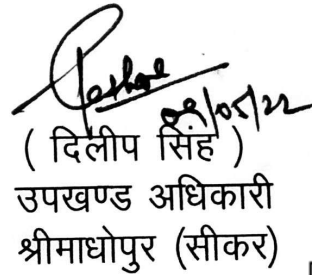 09/05/22
( दिलीप सिंह )
उपखण्ड अधिकारी
श्रीमाधोपुर (सीकर)